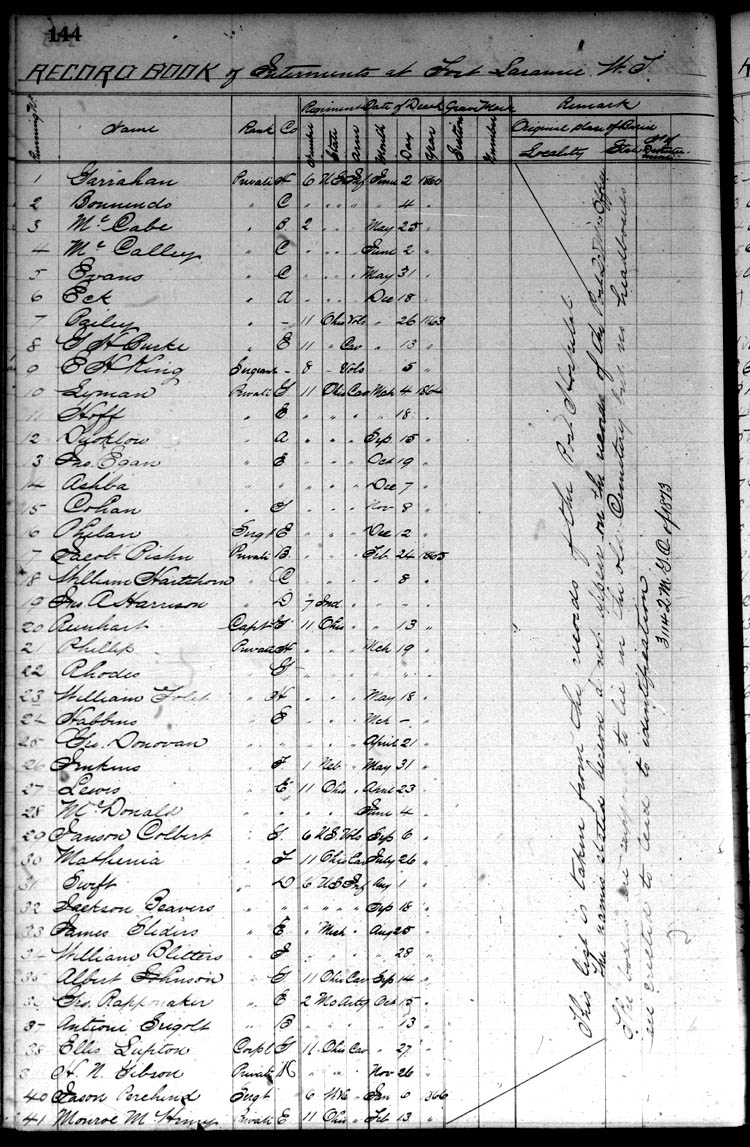 144
RECORD BOOK of Interments at Fort Laramie W. T.
Regiment Date of Death Grave Mark Remark
Running No. Name Rank Co Number State Arm Month Day Year Section Number Original place of Burial
Locality
1 Garrahan Private H 6 U S Inf June 2 1860
2 " C " " " " 4 "
3 McCabe " B 2 " " May 25 "
4 McCalley " C " " " June 2 "
5 Evans " C " " " May 31 "
6 Eck " A " " " Dec 18 "
7 Bailey " - 11 Ohio Vols " 26 1863
8 Burke " E 11 " Cav " 13 "
9 E H King Sergeant - 8 - Vols " 5 "
10 Lyman Private G 11 Ohio Cav Mch 4 1864
11 Hoff " E " " " " 18 "
12 " A " " " Sep 15 "
13 Jno. Egan " E " " " Oct 19 "
14 Ashba " " " " " Dec 7 "
15 Cohan " G " " " Nov 8 "
16 Phelan Sergt E " " " Dec 12 "
17 Jacob Private B " " " Feb 24 1865
18 William Hartshorn " C " " " " 8 "
19 Jno. A Harrison " D 7 Ind " " " "
20 Reinhart Capt G 11 Ohio " " 13 "
21 Phillip Private H " " " Mch 19 "
22 Rhodes " G " " " " " "
23 William " H " " " May 18 "
24 Habbins " E " " " Mch - "
25 Geo. Donovan " " " " " April 21 "
26 Jenkins " F 1 Neb " May 31 "
27 Lewis " E 11 Ohio " April 23 "
28 McDonald " " " " " June 4 "
29 Janson Colbert " G 6 U S Vols Sep 6 "
30 Mathenia " F 11 Ohio Cav July 26 "
31 Swift " D 6 U S Inf Aug 1 "
32 Jackson Beavers " " " " " Sep 18 "
33 James Sliders " E " Mich " Aug 25 "
34 William Blitters " " " " " 28 "
35 Albert Johnson " G 11 Ohio Cav Sep 14 "
36 Geo. Rappmaker " E 2 Mo Arty Oct 15 "
37 Antione " B " " " " 13 "
38 Ellis Lupton Corpl G 11 Ohio Cav " 27 "
39 H. N. Gibson Private K " " " Nov 26 "
40 Jason Sergt " 6 Jan 6 1866
41 Monroe M Henry Private E 11 Ohio " Feb 13 "
This list is taken from the records of the Post Hospital
The names stated hereon do not appear on the records of the Post Office
The bodies are supposed to lie in the old Cemetery but no headboards
are erected to lead to identification
3114 Q. M. G. O. of 1873